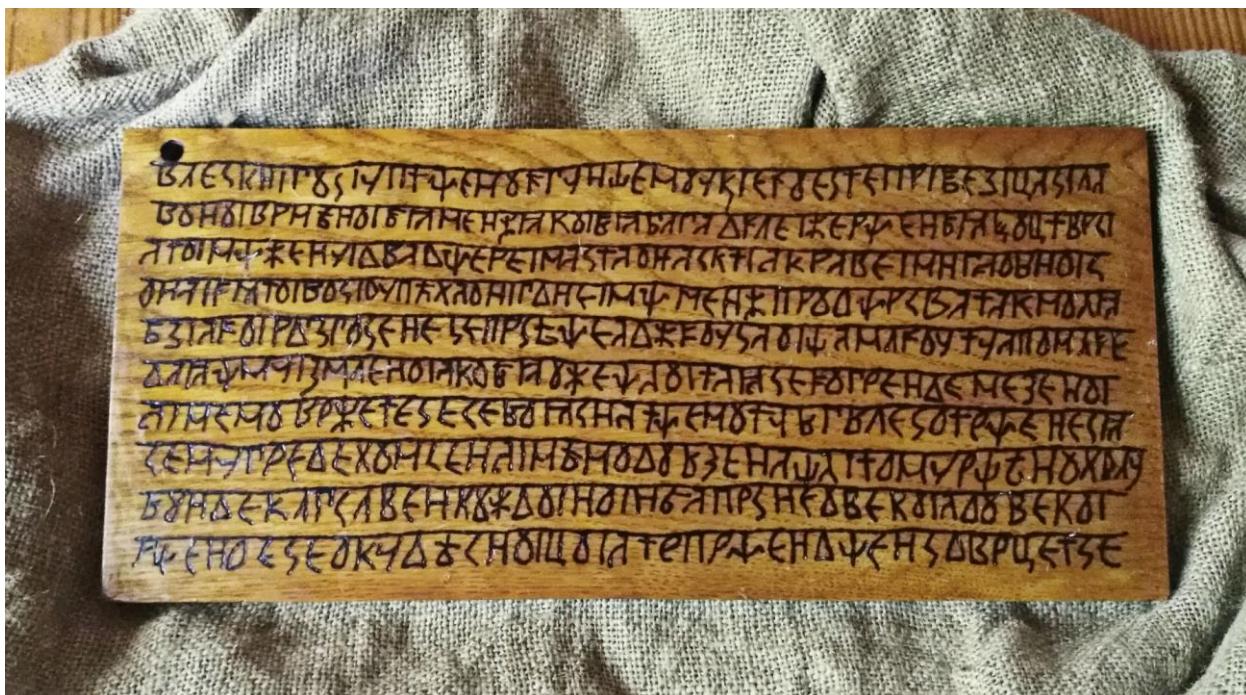 ВЛЕСКНІГОСІУПТЩЕМОБГУНШЕМОУКІЕБОЕСТЕПРІБЕЗІЦАСІЛА
ВОНОІВРМЕНОІБІАМЕНЖІАКОІБІАБЛГАДБЛЕІЖЕРЩЕНБІАКОЩТВРСІ
АТОІМЩЖЕНУІДВАДЩЕРЕІМАСТАОНАСКТІАКРАВЕІМНГАОВНОІС
ОНАІБМТОІВОСІОУПЪХАОНІГДНЕІМЩМЕНЖПРОДЩРСВАТАКМОЛІА
БЗІАБОІРДЗГОСЕНЕСЕПРСЪЩЕАДЖБОУСЛОІЩАМЛБОУТУАПОМЛБЕ
ДАІАЩМУІЗМЛЕНОІАКОБІАОЖЕЩАОІТАІАСЕБОГРЕНДЕМЕЗЕНОІ
АІМЕМОВРЖЕТЕСЕСЕВОІАСНАТЩЕМОТУБГВЛЕСОТРЩЕНЕСІА
СЕМУГРЕДЕХОМСЕНАІМОМОДОБЗЕНАЩАІТОМУРЩЪНОХВЛУ
БОНДЕКЛГСЛВЕНКОЖДОІНОІНБАПРСНЕОВЕКОІАДОВЕКОІ
РЩЕНОЕСЕОКУДЪСНОІЦОІАТЕПРЩЕНДЩЕНСОВРЦЕТСЕ